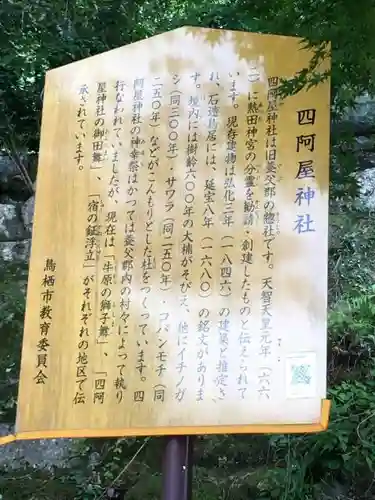 四阿屋神社
四阿屋神社は旧養父郡の宗社です。天智天皇元年(六六
二)に熱田神宮の分霊を勧請・創建したものと伝えられて
います。現存建物は弘化三年(一八四六)の建築と推定さ
れ、石造鳥居には、延宝八年(一六八〇)の銘文がありま
す。境内には樹齢六〇〇年の大楠がそびえ、他にイチノガ
シ(同三〇〇年)、サワラ(同一五〇年)・コバンモチ(同
二五〇年)などがこんもりとした杜をつくっています。四
阿屋神社の神幸祭はかつては養父郡内の村々によって執り
行なわれていましたが、現在は「牛原の獅子舞」、「四阿
屋神社の御田舞」、「宿の鉦浮立」がそれぞれの地区で伝
承されています。
鳥栖市教育委員会